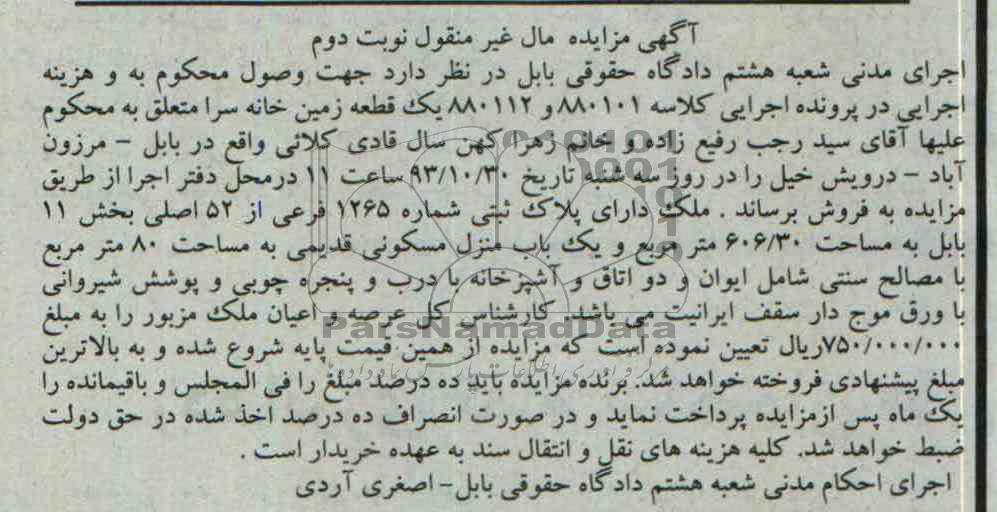 آگهی مزایده مال غیر منقول نوبت دوم
اجرای مدنی شعبه هشتم دادگاه حقوقی بابل در نظر دارد جهت وصول محکوم به و هزینه
اجرایی در پرونده اجرایی کلاسه ۸۸۰۱۰۱ و ۸۸۰۱۱۲ یک قطعه زمین خانه سرا متعلق به محکوم
علیها آقای سید رجب رفیع زاده و خانم زهرا کهن سال قادی کلائی واقع در بابل - مرزون
آباد - درویش خیل را در روز سه شنبه تاریخ ۹۳/۱۰/۳۰ ساعت ۱۱ درمحل دفتر اجرا از طریق
مزایده به فروش برساند . ملک دارای پلاک ثبتی شماره ۱۲۶۵ فرعی از ۵۲ اصلی بخش ۱۱
بابل به مساحت ۶۰۶/۳۰ متر مربع و یک باب منزل مسکونی قدیمی به مساحت ۸۰ متر مربع
با مصالح سنتی شامل ایوان و دو اتاق و آشپزخانه با درب و پنجره چوبی و پوشش شیروانی
با ورق موج دار سقف ایرانیت می باشد. کارشناس کل عرصه و اعیان ملک مزبور را به مبلغ
ParsNamadData
۷۵۰/۰۰۰/۰۰۰ریال تعیین نموده است که مزایده از همین قیمت پایه شروع شده و به بالاترین
مبلغ پیشنهادی فروخته خواهد شد. برنده مزایده باید ده درصد مبلغ را فی المجلس و باقیمانده را
یک ماه پس ازمزایده پرداخت نماید و در صورت انصراف ده درصد اخذ شده در حق دولت
ضبط خواهد شد. کلیه هزینه های نقل و انتقال سند به عهده خریدار است .
اجرای احکام مدنی شعبه هشتم دادگاه حقوقی بابل- اصغری آردی